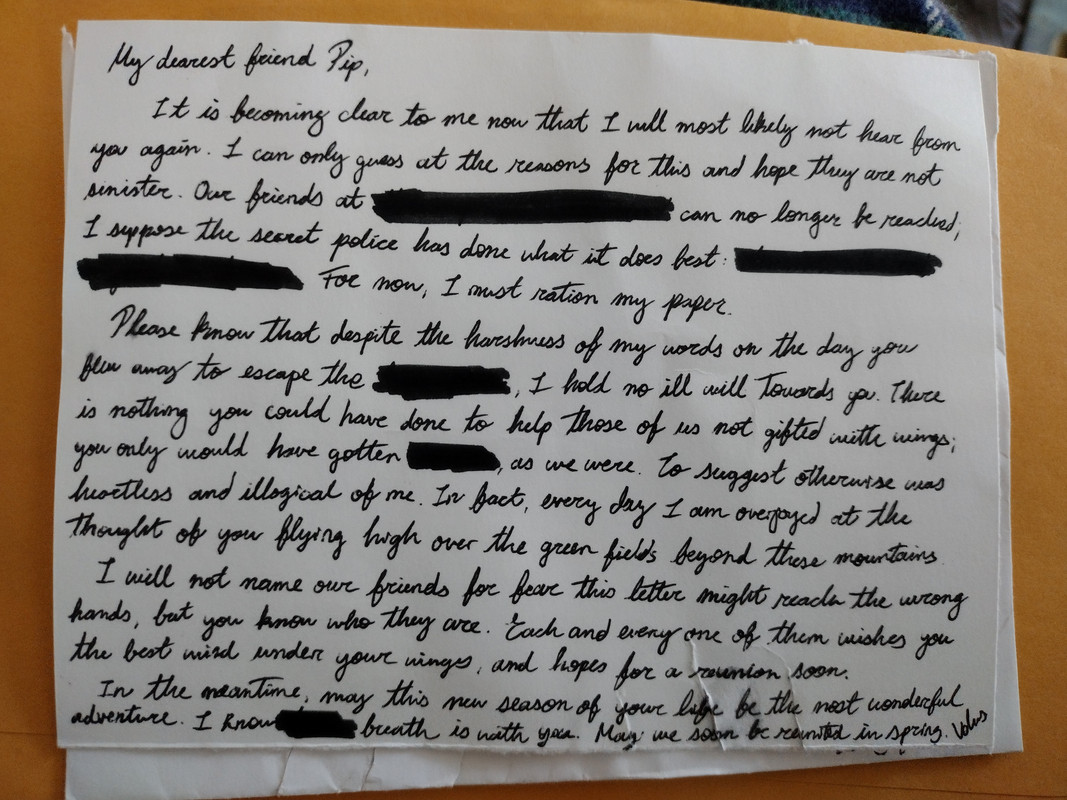 My dearest friend Pip,
It is becoming clear to me now that I will most likely not hear from
you again. I can only guess at the reasons for this and hope they are not
sinister. Our friends at can no longer be reached;
I suppose the secret police has done what it does best:
For now, I must ration my paper.
Please know that despite the harshness of my words on the day you
flew away to escape the , I hold no ill will towards you. There
is nothing you could have done to help those of us not gifted with wings;
you only would have gotten , as we were. To suggest otherwise was
heartless and illogical of me. In fact, every day I am overjoyed at the
thought of you flying high over the green fields beyond these mountains.
I will not name our friends for fear this letter might reach the wrong
hands, but you know who they are. Each and every one of them wishes you
the best wind under your wings, and hopes for a reunion soon.
In the meantime, may this new season of your life be the most wonderful
adventure. I know breath is with you. May we soon be reunited in spring.